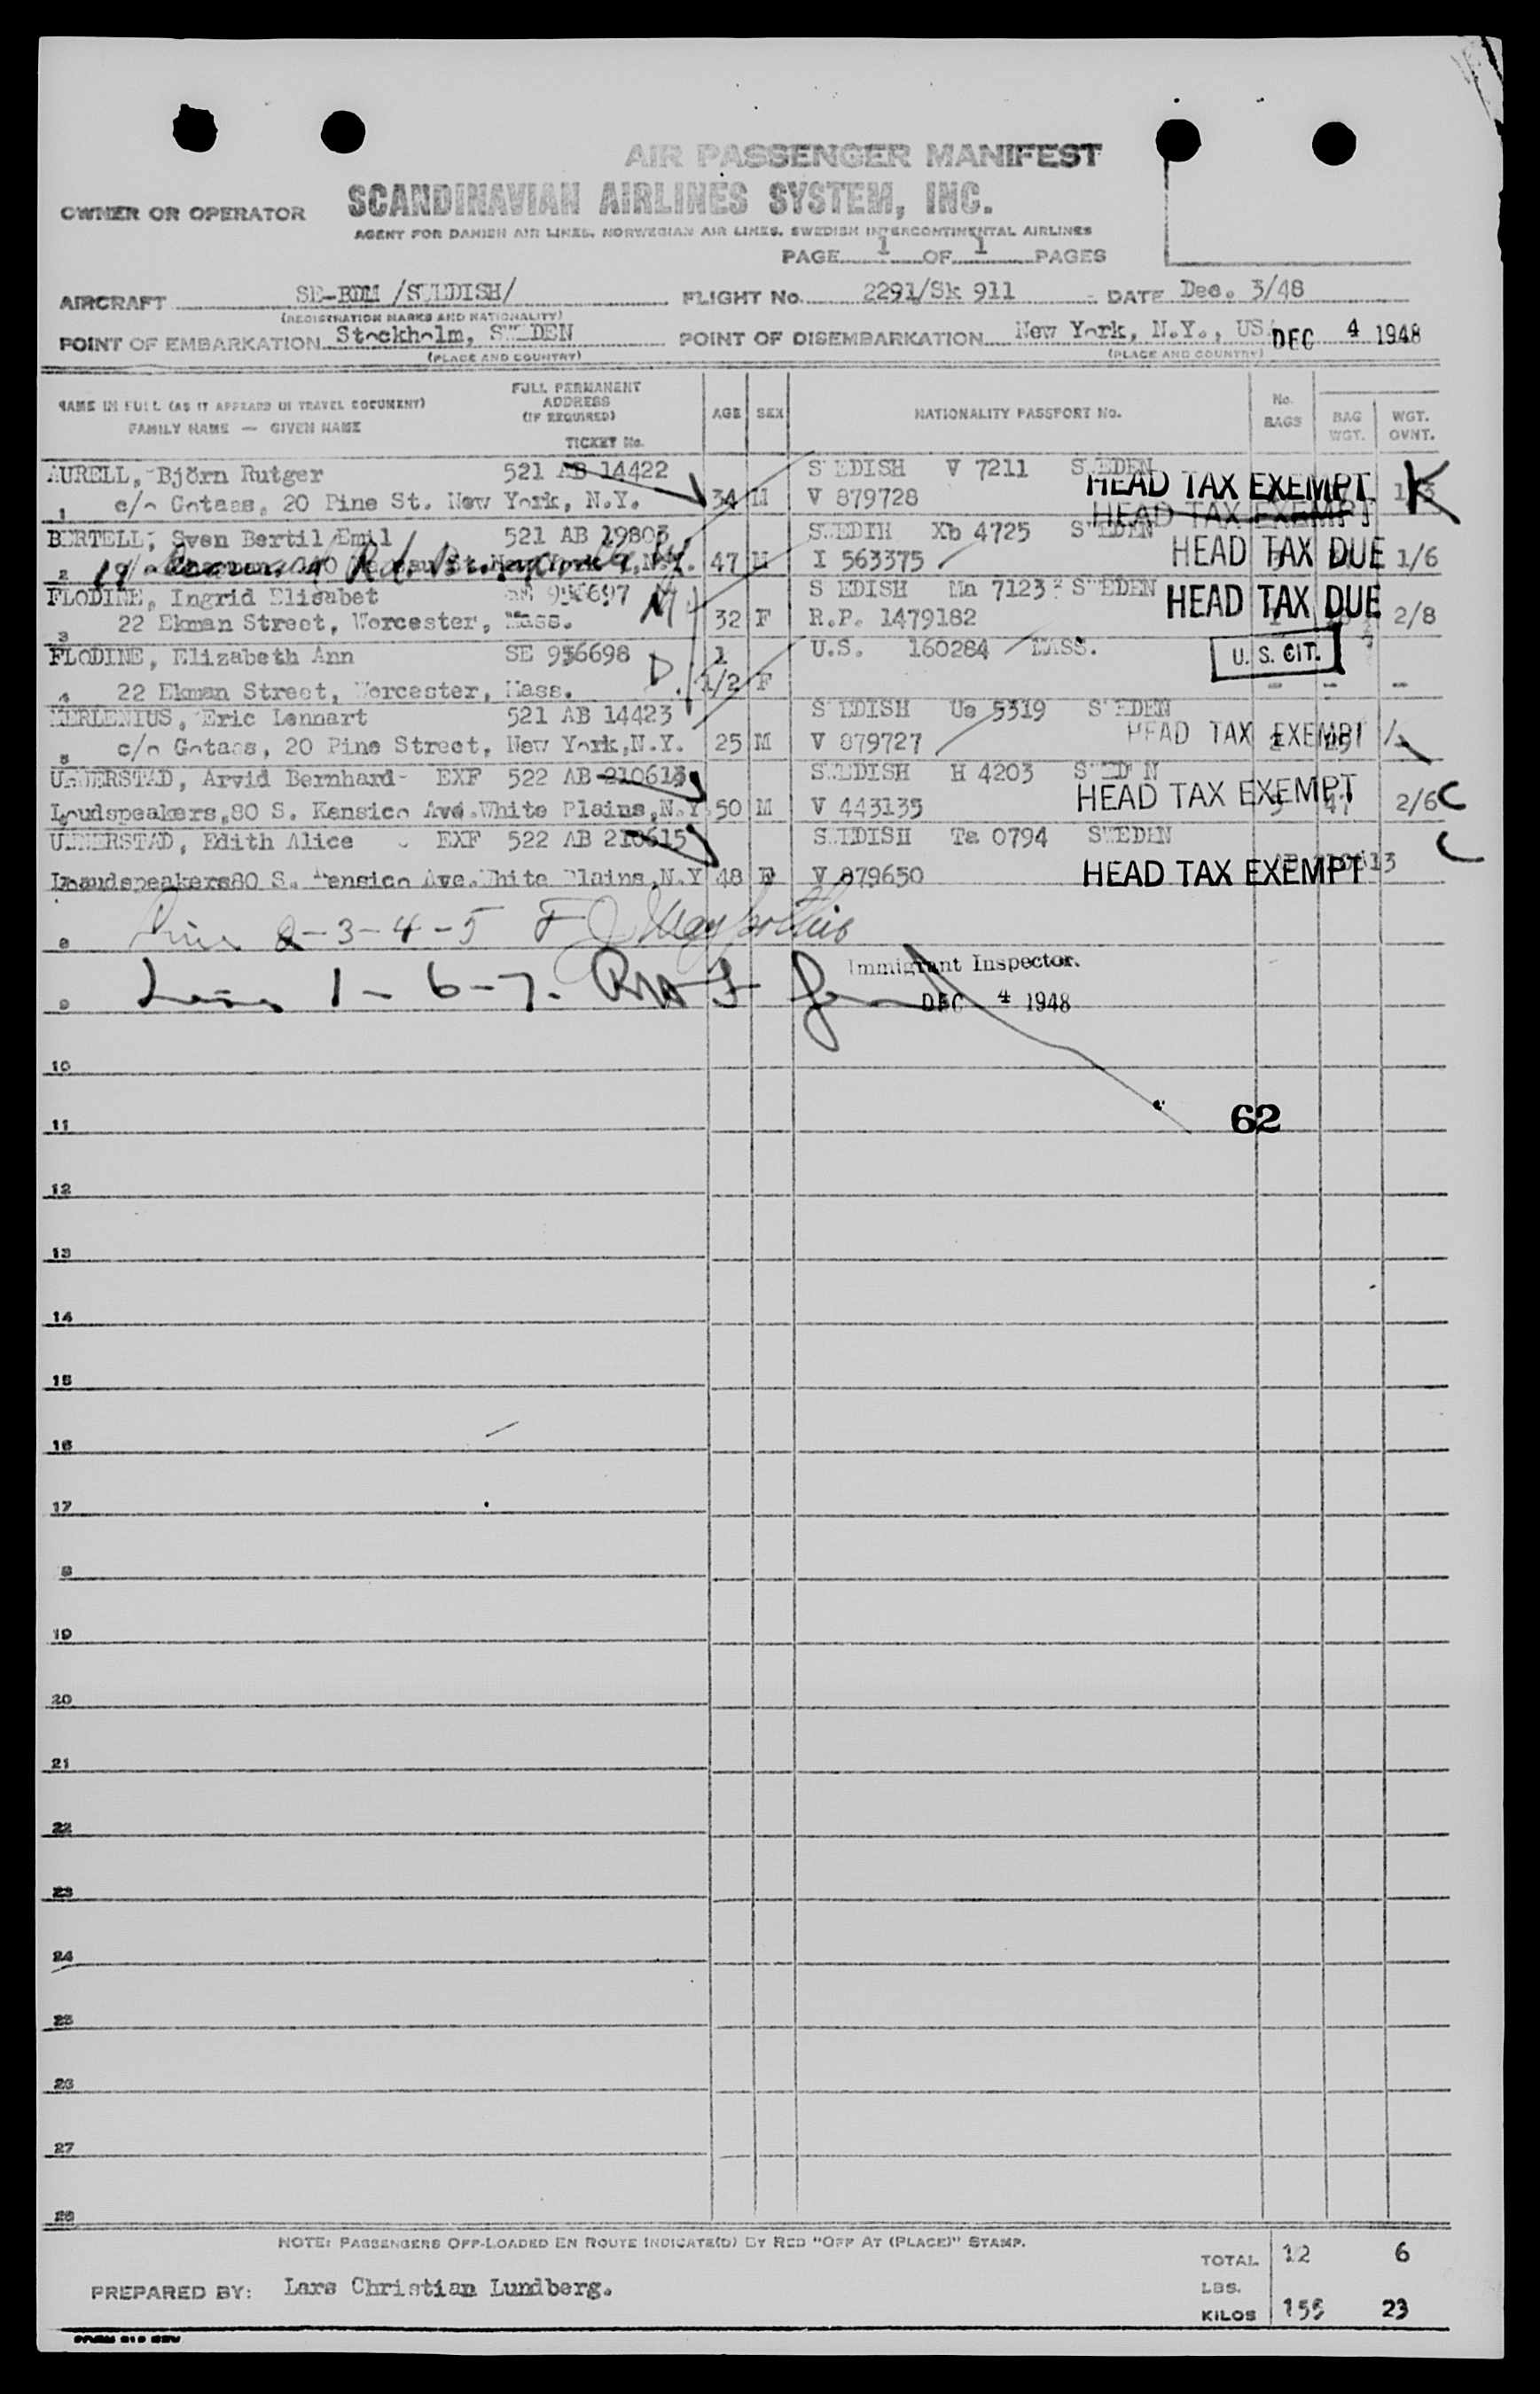 AIR PASSENGER MANIFEST
OWNER OR OPERATOR SCANDINAVIAN AIRLINES SYSTEM, INC.
AGENT FOR DANISH AIR LINES, NORWEGIAN AIR LINES, SWEDISH INTERCONTINENTAL AIRLINES
PAGE 1 OF 1 PAGES
AIRCRAFT SE-BDM /SWEDISH/ FLIGHT No. 2291/Sk 911 DATE Dec. 3/48
(REGISTRATION MARKS AND NATIONALITY)
POINT OF EMBARKATION Stockholm, SWEDEN POINT OF DISEMBARKATION New York, N.Y., USA DEC 4 1948
(PLACE AND COUNTRY) (PLACE AND COUNTRY)
NAME IN FULL (AS IT APPEARS IN TRAVEL DOCUMENT)
FAMILY NAME — GIVEN NAME
FULL PERMANENT
ADDRESS
(IF REQUIRED)
TICKET No.
AGE SEX NATIONALITY PASSPORT No. No. BAGS BAG WGT. WGT. OVNT.
AURELL, Björn Rutger 521 AB 14422 SWEDISH V 7211 SWEDEN
HEAD TAX EXEMPT K
1 c/o Gotaas, 20 Pine St. New York, N.Y. 34 M V 879728
HEAD TAX EXEMPT
BERTELL, Sven Bertil Emil 521 AB 19803 SWEDIH Xb 4725 SWEDEN
2 47 M I 563375 HEAD TAX DUE 1/6
FLODINE, Ingrid Elisabet SE 956697 SWEDISH Ma 7123 SWEDEN
HEAD TAX DUE
3 22 Ekman Street, Worcester, Mass. 32 F R.P. 1479182 2/8
FLODINE, Elizabeth Ann SE 956698 1 U.S. 160284 MASS.
U. S. CIT.
4 22 Ekman Street, Worcester, Mass. D. 1/2 F - - -
MERLENIUS, Eric Lennart 521 AB 14423 SWEDISH Us 5319 SWEDEN
5 c/o Gotaas, 20 Pine Street, New York,N.Y. 25 M V 879727 HEAD TAX EXEMPT
UNNERSTAD, Arvid Bernhard- EXF 522 AB 210613 SWEDISH H 4203 SWEDEN
Loudspeakers,80 S. Kensico Ave.White Plains,N.Y. 50 M V 443135 HEAD TAX EXEMPT 47 2/6 C
UNNERSTAD, Edith Alice EXF 522 AB 210615 SWEDISH Ta 0794 SWEDEN C
Loaudspeakers80 S. Kensico Ave.White Plains,N.Y 48 F V 879650 HEAD TAX EXEMPT
8 Lines 2-3-4-5
Immigrant Inspector.
9 Lines 1-6-7.
DEC 4 1948
10
62
11
12
13
14
15
16
17
8
19
20
21
22
23
24
25
26
27
28
NOTE: PASSENGERS OFF-LOADED EN ROUTE INDICATE(D) BY RED "OFF AT (PLACE)" STAMP.
TOTAL 12 6
PREPARED BY: Lars Christian Lundberg.
LBS.
KILOS 155 23